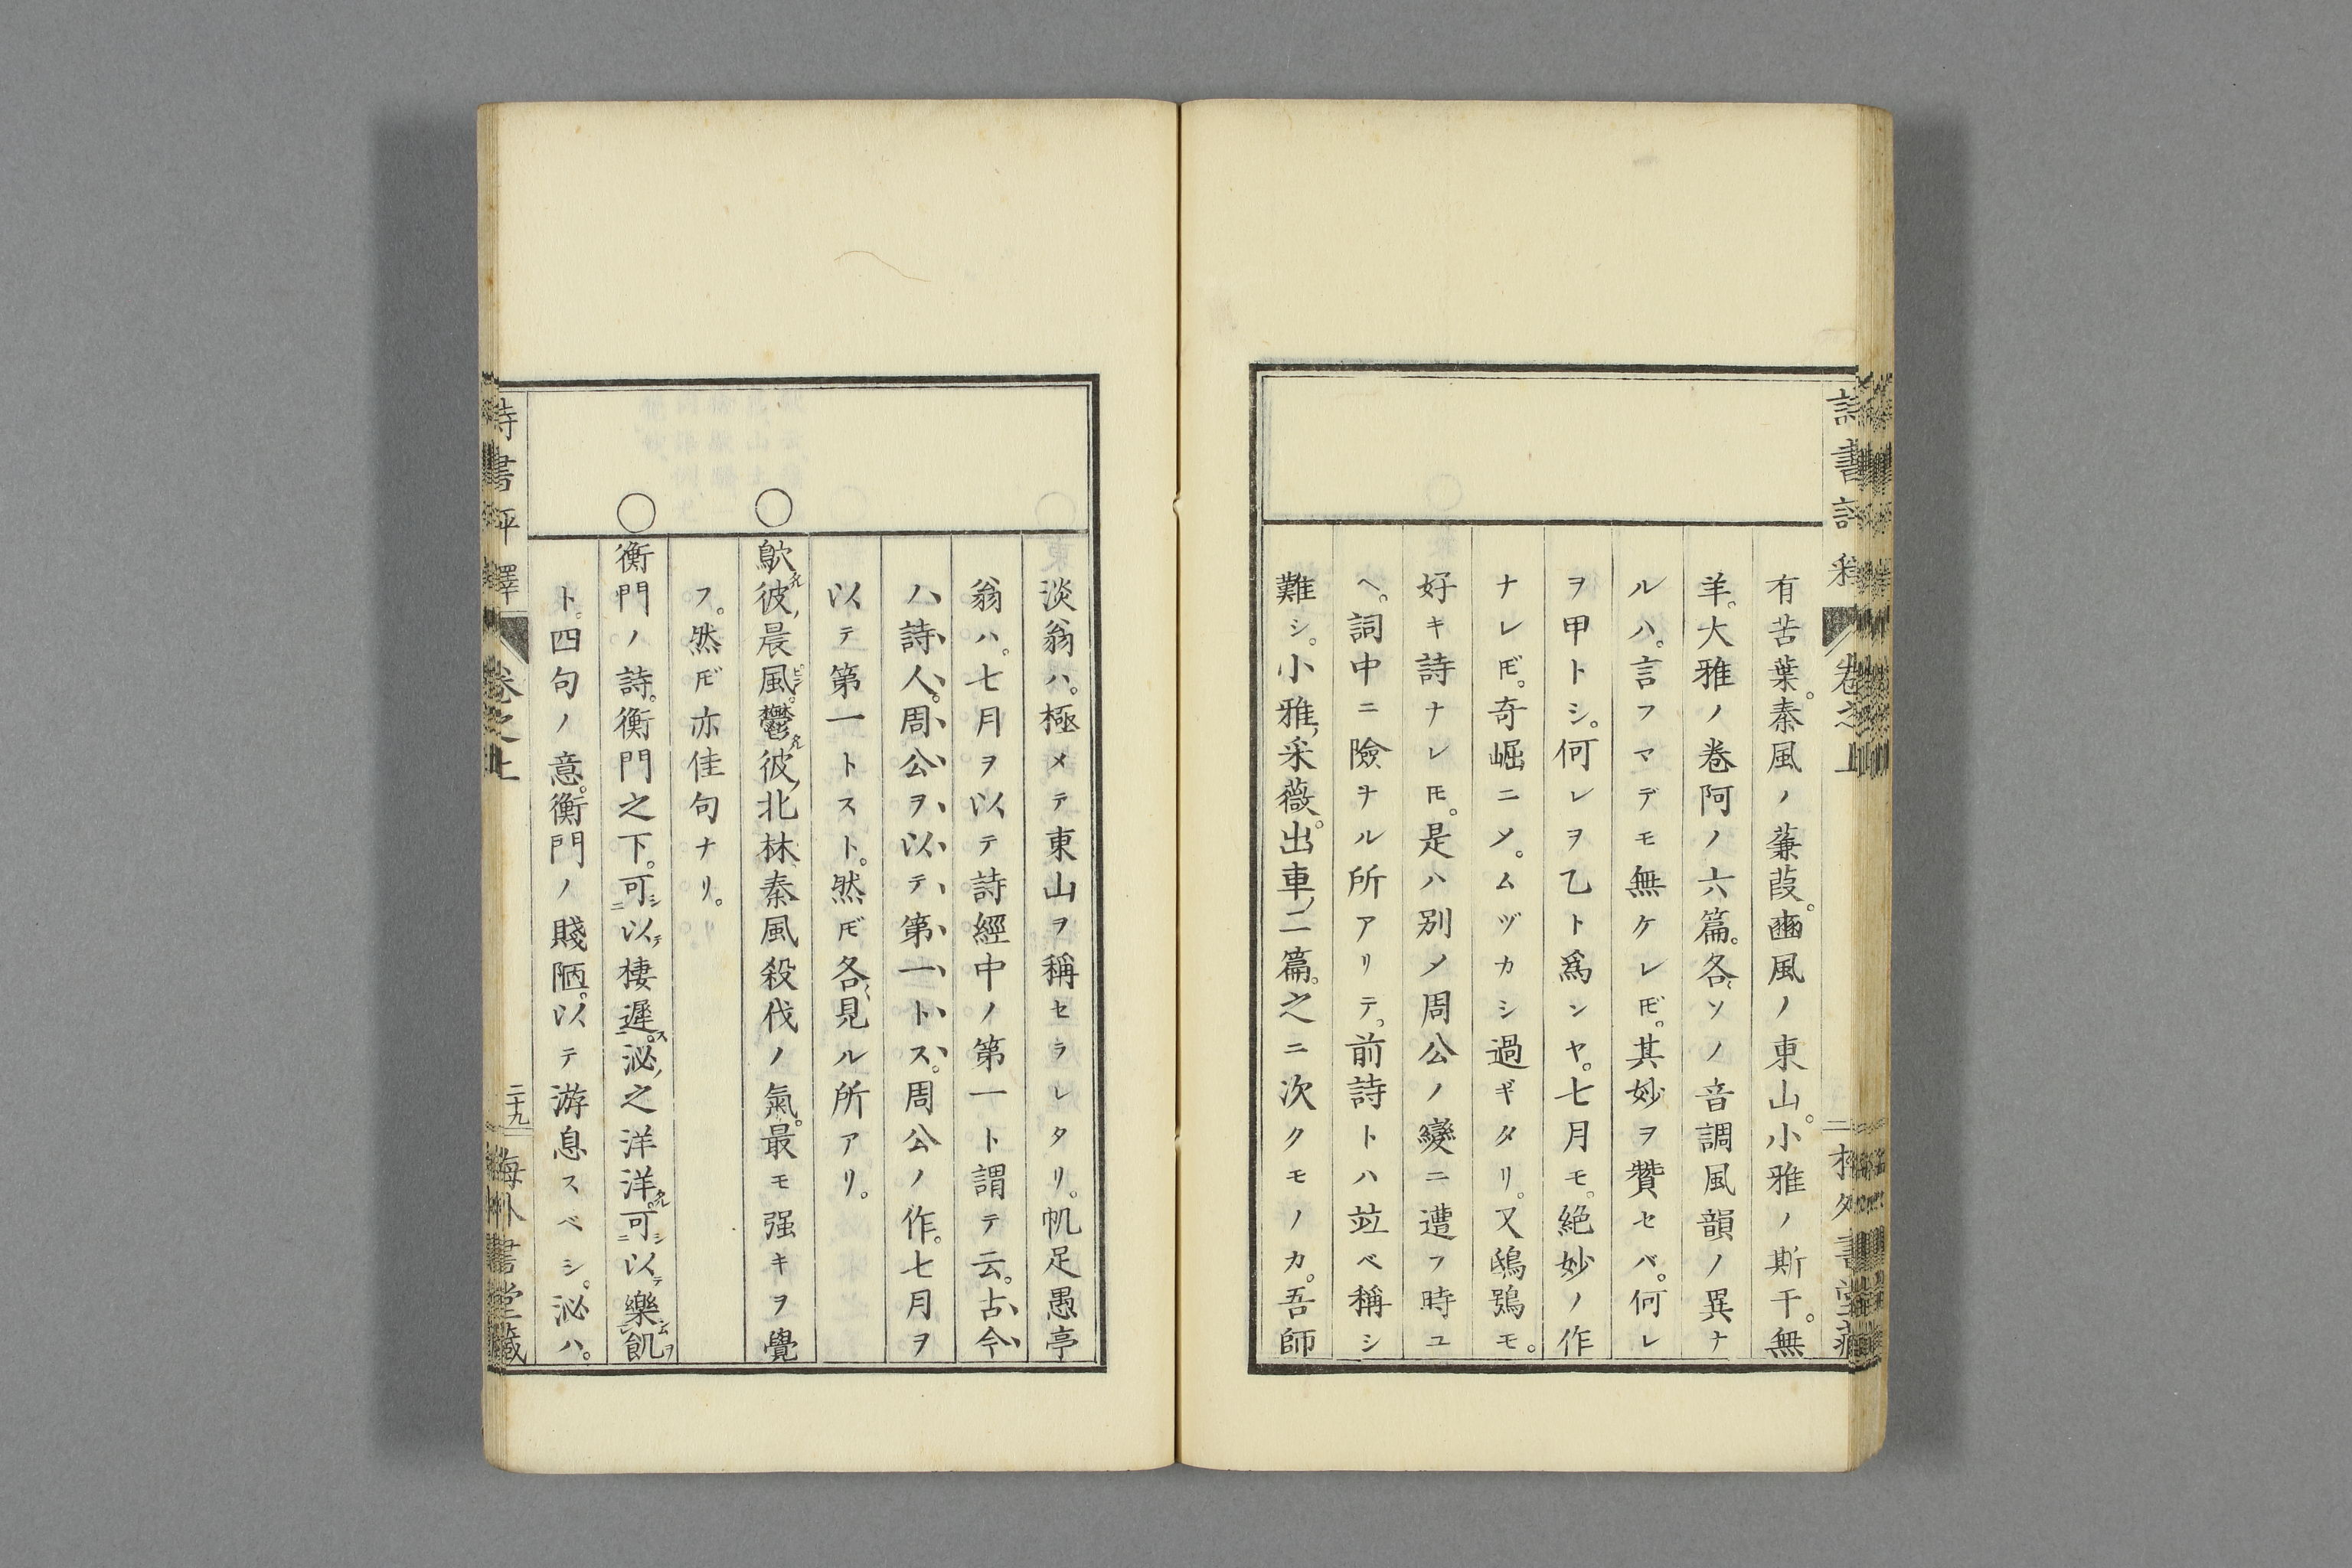 有苦葉。秦風ノ蒹葭。豳風ノ東山。小雅ノ斯干。無
羊。大雅ノ巻阿ノ六篇。各〻ソノ音調風韻ノ異ナ
ルハ。言フマデモ無ケレ𪜈。其妙ヲ贊セバ。何レ
ヲ甲トシ。何レヲ乙ト爲ンヤ。七月モ。絶妙ノ作
ナレ𪜈。奇崛ニメ。ムヅカシ過ギタリ。又鴟鴞モ。
好キ詩ナレ𪜈。是ハ別メ周公ノ變ニ遭フ時ユ
ヘ。詞中ニ險ナル所アリテ。前詩トハ竝ベ稱シ
難シ。小雅、采薇。出車、二篇。之ニ次クモノカ。吾師
淡翁ハ。極メテ東山ヲ稱セラレタリ。帆足愚亭
翁ハ。七月ヲ以テ詩經中ノ第一ト謂テ云。古今
ハ詩人。周公ヲ以テ第一トス。周公ノ作。七月ヲ
以テ第一トスト。然𪜈各〻見ル所アリ。
○鴥彼晨風。鬱彼北林、秦風殺伐ノ氣。最モ强キヲ覺
フ。然𪜈亦佳句ナリ。
○衡門ノ詩。衡門之下。可以棲遲。泌之洋洋。可以樂飢
ト。四句ノ意。衡門ノ賤陋。以テ游息スベシ。泌ハ。
詩書評釋 卷之上 二十九 梅外書堂藏